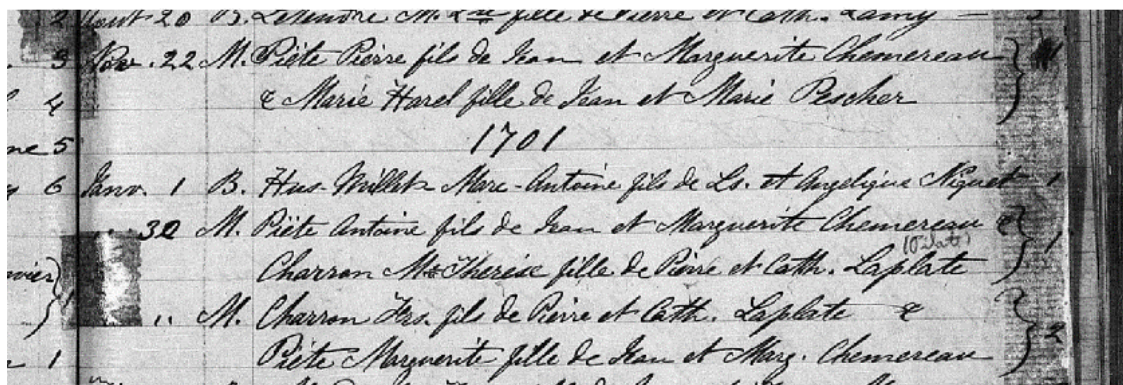 2 Aout 20 B. Letendre M. Lse fille de Pierre et Cath. Lamy — 3
3 Nov. 22 M. Piëte Pierre fils de Jean et Marguerite Chemereau
4 & Marie Harel fille de Jean et Marie Pescher
5 1701
6 Janv. 1 B. Hus-Millet Marc-Antoine fils de Ls. et Angelique Niquet 1
30 M. Piëte Antoine fils de Jean et Marguerite Chemereau & 1
(Pilate)
Charron M Therèse fille de Pierre et Cath. Laplate
" M. Charron Frs. fils de Pierre et Cath. Laplate & 2
1 Piëte Marguerite fille de Jean et Marg. Chemereau